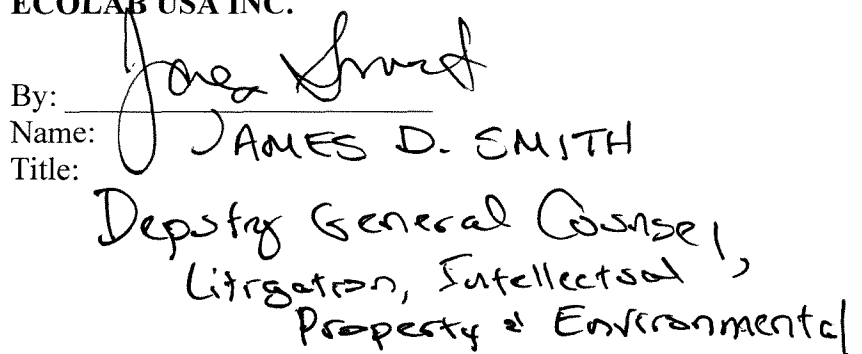 ECOLAB USA INC.
By:
Name: JAMES D. SMITH
Title:
Deputy General Counsel,
Litigation, Intellectual
Property & Environmental